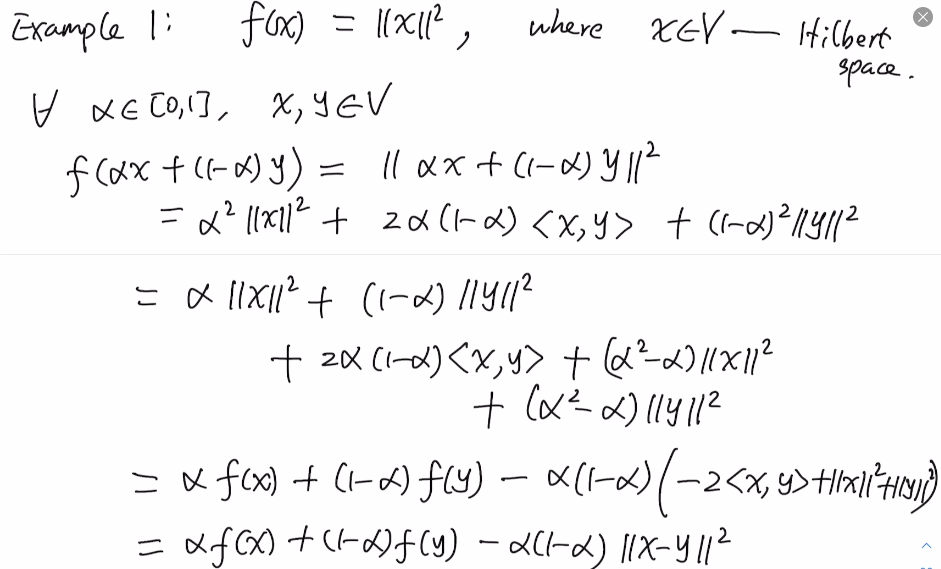 Example 1: f(x) = ||x||², where x∈V — Hilbert
space.
∀ α∈[0,1], x, y∈V
f(αx + (1-α)y) = || αx + (1-α) y||²
= α² ||x||² + 2α(1-α) <x, y> + (1-α)²||y||²
= α ||x||² + (1-α) ||y||²
+ 2α(1-α)<x, y> + (α²-α)||x||²
+ (α²-α)||y||²
= α f(x) + (1-α) f(y) - α(1-α)(-2<x, y>+||x||²+||y||²)
= αf(x) + (1-α)f(y) - α(1-α) ||x-y||²